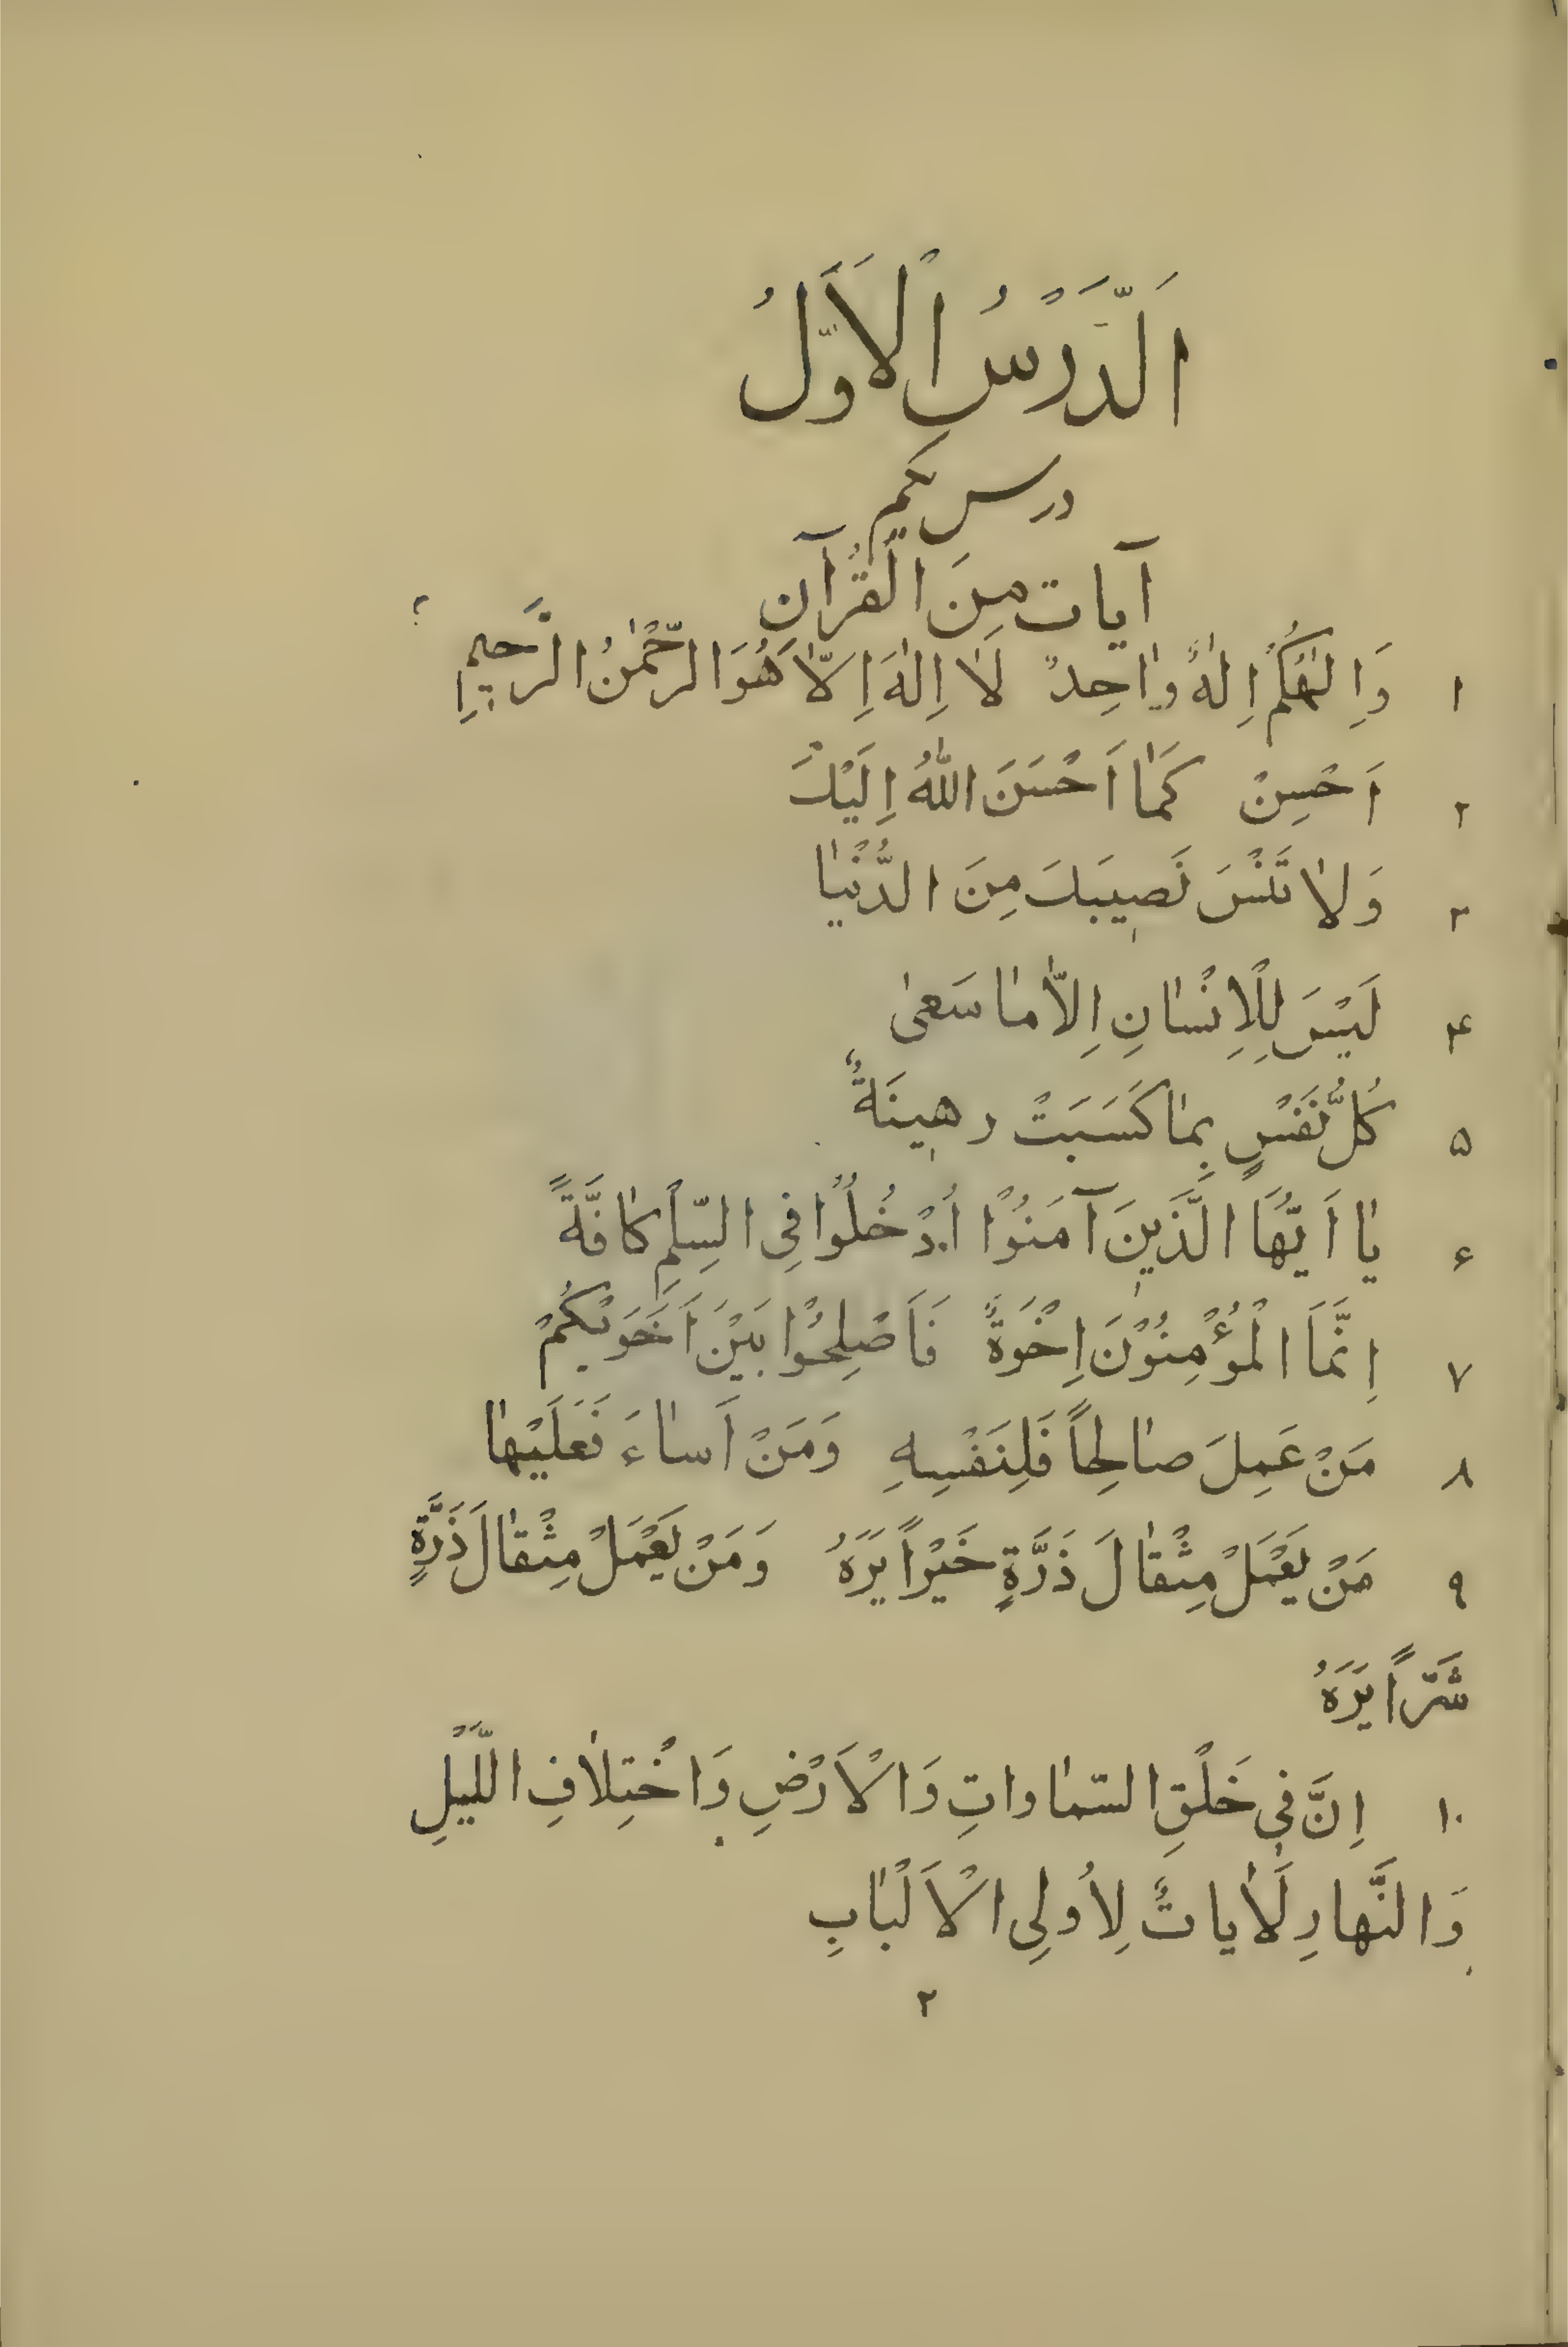 اَلدَّرْسُ الْاَوَّلُ
درس یکم
آیات مِنَ الْقُرْآنِ
۱ وَاِلٰهُكُمْ اِلٰهٌ وٰاحِدٌ لَاٰ اِلٰهَ اِلاّٰ هُوَ الرَّحْمٰنُ الرَّحیم
۲ اَحْسِنْ كَمٰا اَحْسَنَ اللّٰهُ اِلَيْكَ
۳ وَلاٰ تَنْسَ نَصيبَكَ مِنَ الدُّنْيٰا
۴ لَيْسَ لِلْاِنْسٰانِ اِلاّٰ مٰا سَعىٰ
۵ كُلُّ نَفْسٍ بِمٰا كَسَبَتْ رهينَةٌ
۶ يٰا اَيُّهَا الَّذَينَ آمَنُوْا اُدْخُلُوْا فِى السِّلْمِ كٰافَّةً
۷ اِنَّمَا الْمُؤْمِنُوْنَ اِخْوَةٌ فَاَصْلِحُوْا بَيْنَ اَخَوَيْكُمْ
۸ مَنْ عَمِلَ صٰالِحاً فَلِنَفْسِهِ وَمَنْ اَسٰاءَ فَعَلَيْهٰا
۹ مَنْ يَعْمَلْ مِثْقٰالَ ذَرَّةٍ خَيْراً يَرَهُ وَمَنْ يَعْمَلْ مِثْقٰالَ ذَرَّةٍ
شَرّاً يَرَهُ
۱۰ اِنَّ في خَلْقِ السّمٰاواتِ وَالْاَرْضِ وَاخْتِلاٰفِ اللَّيْلِ
وَالنَّهارِ لَاٰياتٌ لِاُولِى الْاَلْبٰابِ
۲